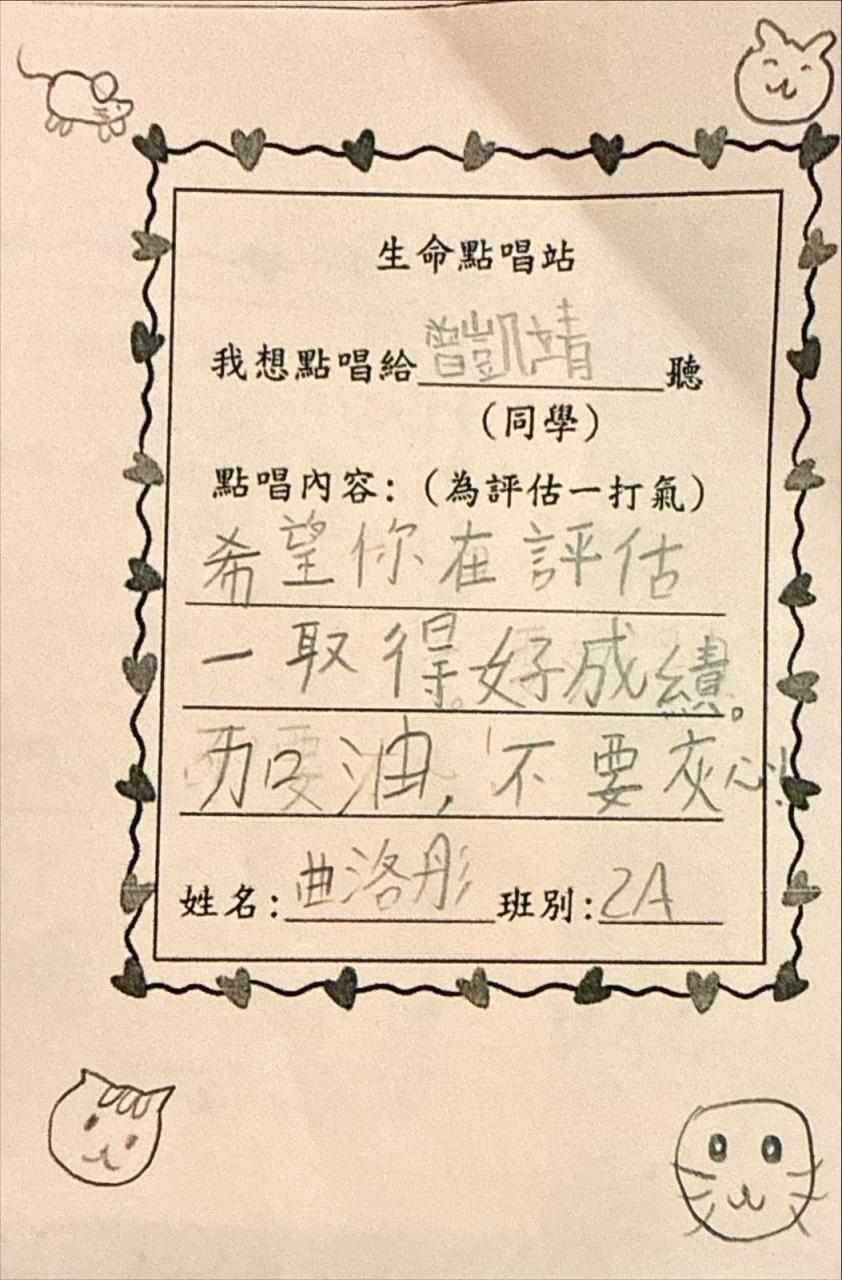 生命點唱站
我想點唱給曾凱靖聽
（同學）
點唱內容：（為評估一打氣）
希望你在評估
一取得好成績。
加油，不要灰心！
姓名：曲洛彤 班別：2A